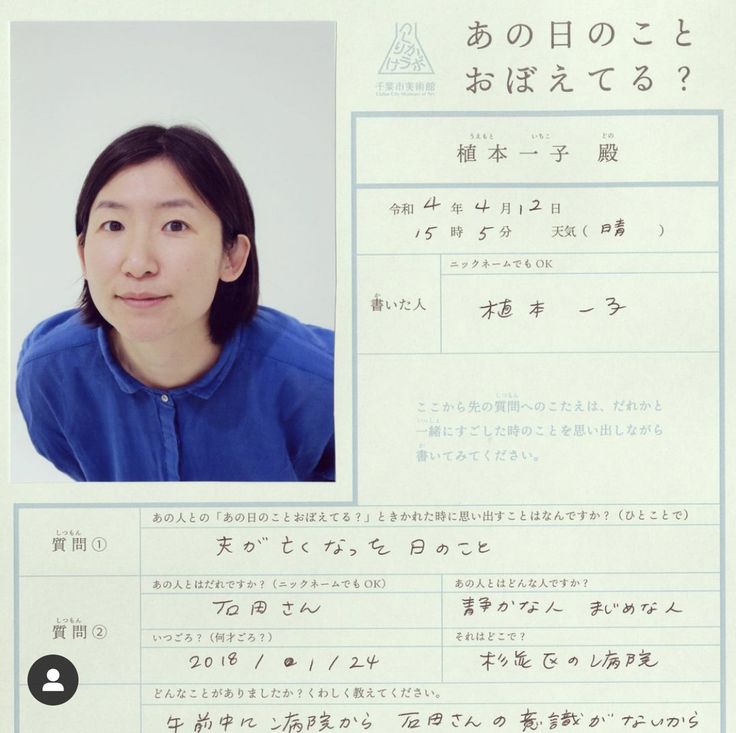 つくりかけラボ
千葉市美術館
Chiba City Museum of Art
あの日のこと
おぼえてる？
うえもと いちこ どの
植本一子 殿
令和 4 年 4 月 12 日
15 時 5 分 天気（ 晴 ）
ニックネームでもOK
か
書いた人
植本 一子
しつもん
ここから先の質問へのこたえは、だれかと
いっしょ
一緒にすごした時のことを思い出しながら
か
書いてみてください。
あの人との「あの日のことおぼえてる？」ときかれた時に思い出すことはなんですか？（ひとことで）
しつもん
質問①
夫が亡くなった日のこと
あの人とはだれですか？（ニックネームでもOK）
あの人とはどんな人ですか？
石田さん
静かな人 まじめな人
しつもん
質問②
いつごろ？（何才ごろ？）
それはどこで？
2018 / 1 / 24
杉並区の病院
どんなことがありましたか？くわしく教えてください。
午前中に病院から 石田さんの意識がないから